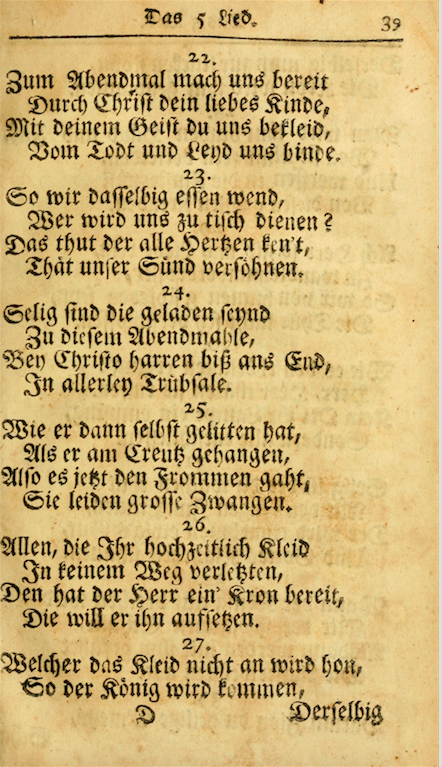 Das 5 Lied. 39
22.
Zum Abendmal mach uns bereit
Durch Christ dein liebes Kinde,
Mit deinem Geist du uns bekleid,
Vom Todt und Leyd uns binde.
23.
So wir dasselbig essen wend,
Wer wird uns zu tisch dienen?
Das thut der alle Hertzen ken't,
Thät unser Sünd versöhnen.
24.
Selig sind die geladen seynd
Zu diesem Abendmahle,
Bey Christo harren biß ans End,
In allerley Trübsale.
25.
Wie er dann selbst gelitten hat,
Als er am Creutz gehangen,
Also es jetzt den Frommen gaht,
Sie leiden grosse Zwangen.
26.
Allen, die Ihr hochzeitlich Kleid
In keinem Weg verletzten,
Den hat der Herr ein' Kron bereit,
Die will er ihn aufsetzen.
27.
Welcher das Kleid nicht an wird hon,
So der König wird kommen,
D Derselbig